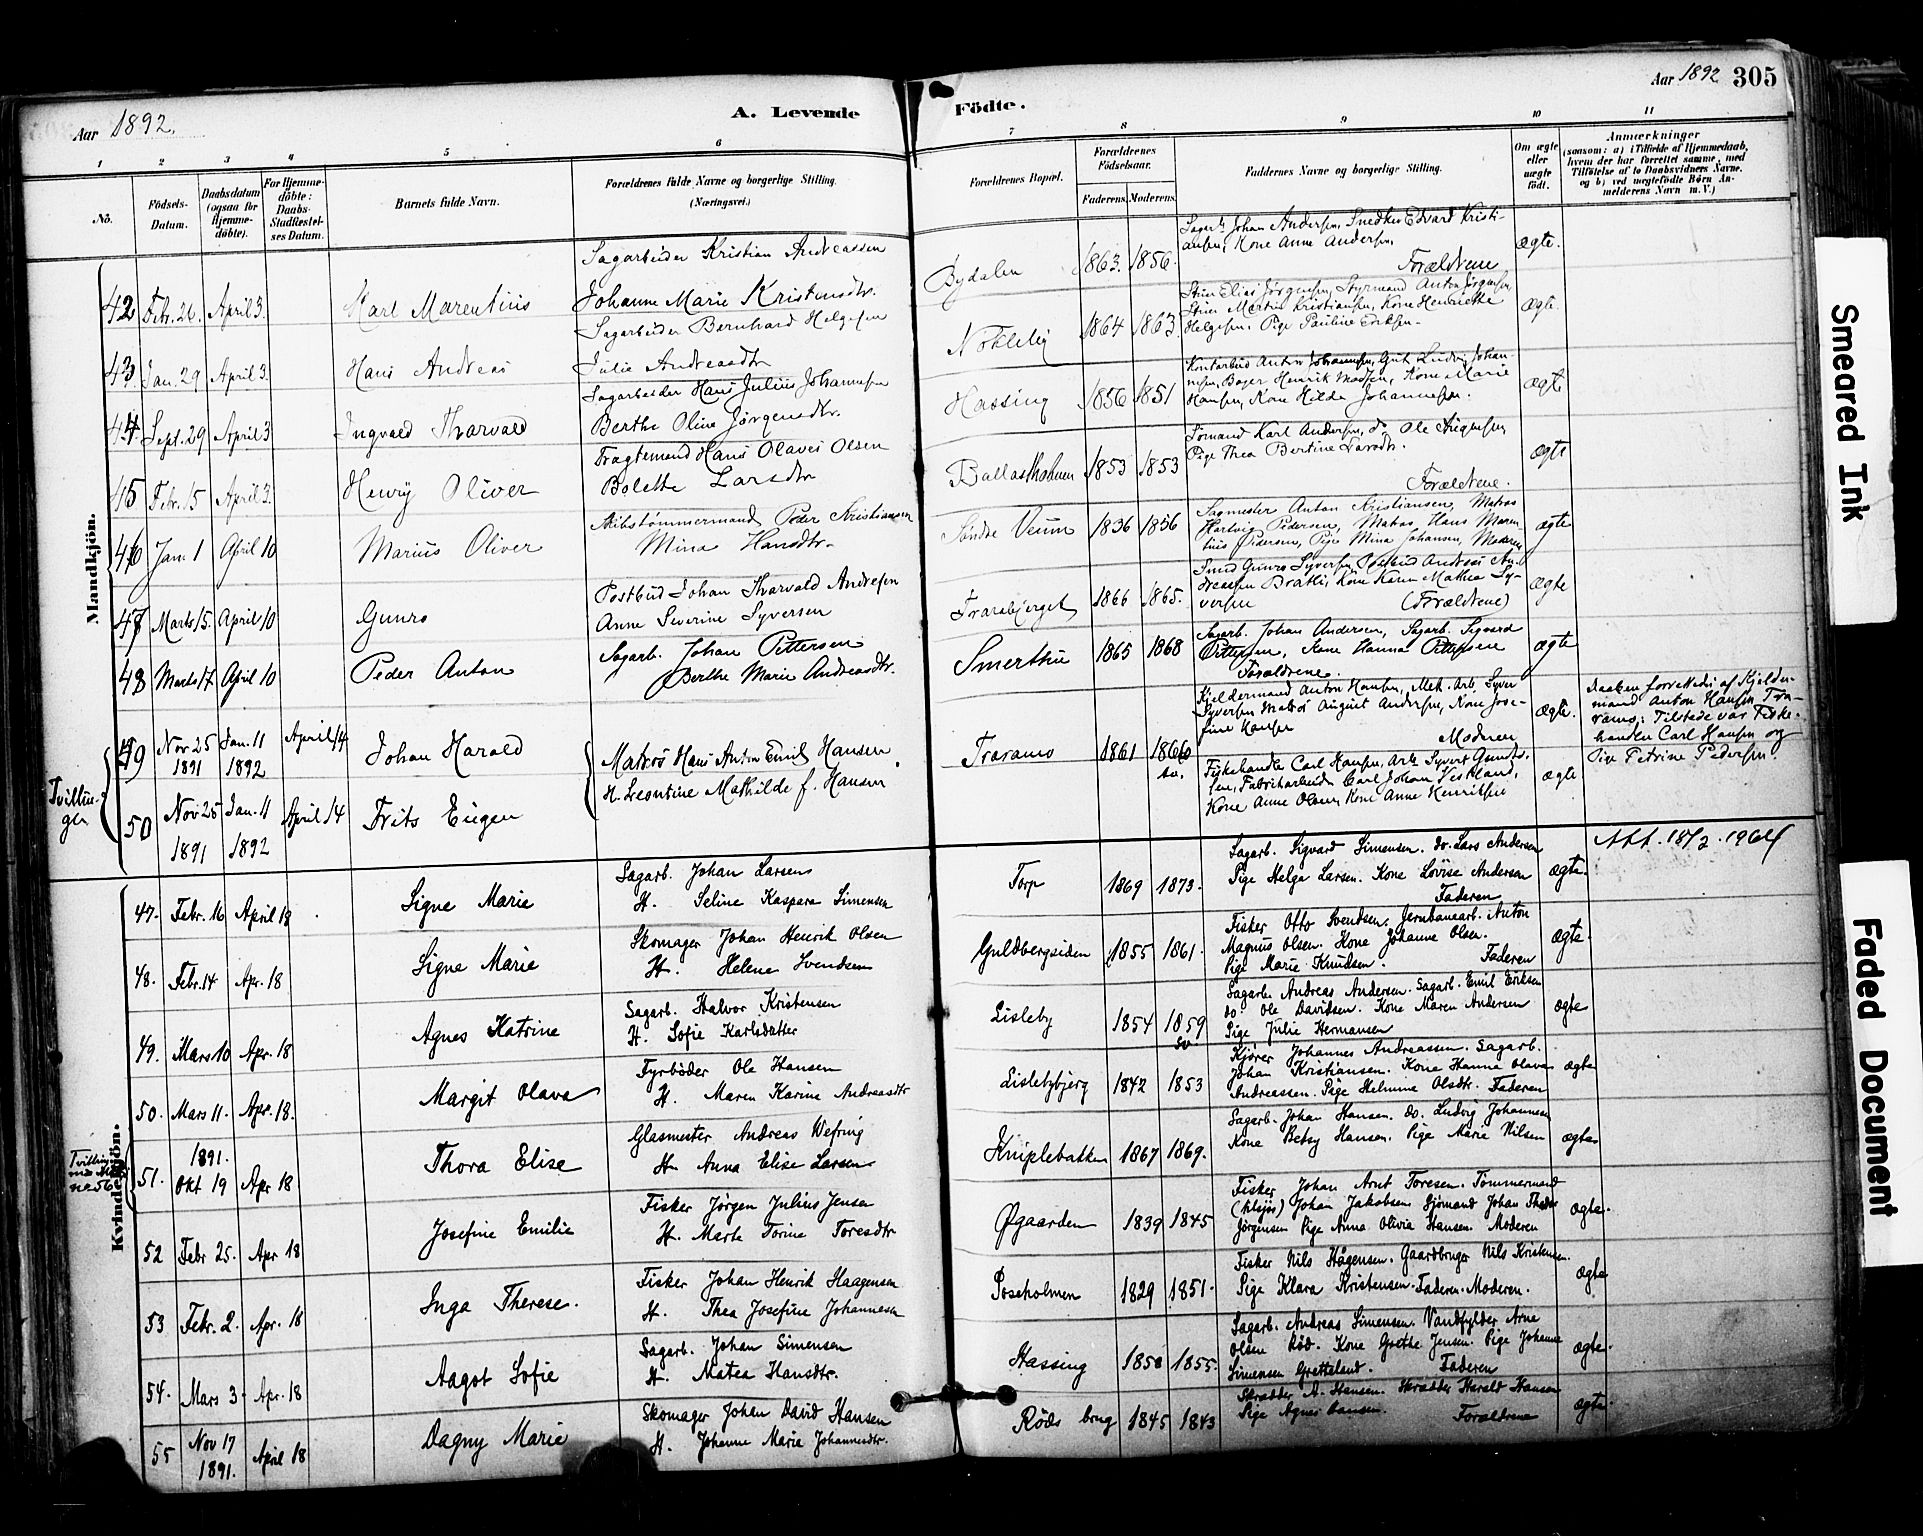 Aar 1892.
A. Levende
Födte.
Aar 1892
305
1 2 3 4 5 6 7 8 9 10 11
No.
Födsels-Datum.
Daabsdatum (ogsaa for Hjemme-döbte).
For Hjemme-döbte: Daabs-Stadfæstel-ses Datum.
Barnets fulde Navn.
Forældrenes fulde Navne og borgerlige Stilling.
(Næringsvei.)
Forældrenes Bopæl.
Forældrenes Födselsaar.
Faderens. Moderens.
Faddernes Navne og borgerlige Stilling.
Om ægte eller uægte födt.
Anmærkninger
(saasom: a) i Tilfælde af Hjemmedaab,
hvem der har forrettet samme, med
Tilföielse af to Daabsvidners Navne,
og b) ved uægtefödte Börn An-
melderens Navn m. V.)
Mandkjön.
42 Febr. 26. April 3. Karl Marentius
Sagarbeider Kristian Andreassen
Johanne Marie Kristensdtr.
Bydalen 1863. 1856.
Sagarb. Johan Andersen, Snedker Edvard Kristi-
ansen, Kone Anne Andersen,
Forældrene
ægte.
43 Jan. 29 April 3. Hans Andreas
Sagarbeider Bernhard Helgesen
Julie Andreasdtr
Nökleby 1864 1863.
Stuer Elias Jörgensen, Styrmand Anton Jörgensen,
Stuer Martin Kristiansen, Kone Henriette
Helgesen. Pige Pauline Eriksen.
ægte.
44 Sept. 29 April 3 Ingvald Thorvald
Sagarbeider Hans Julius Johannesen
Berthe Oline Jørgensdtr.
Hassing 1856 1851
Kontorbud Anton Johannesen, Gut Ludvig Johan-
nesen, Bager Henrik Madsen, Kone Marie
Hansen, Kone Hilda Johannesen.
ægte
45 Febr. 15 April 3. Henry Oliver
Fragtemand Hans Olaves Olsen
Bolette Larsdtr
Ballastholmen 1853 1853
Sömand Karl Andersen, do Ole
Pige Thea Bertine Larsdtr.
Forældrene.
ægte
46 Jan. 1 April 10 Marius Oliver
Skibstømmermand Peder Kristiansen
Mina Hansdtr.
Söndre Veum 1836 1856
Sagmester Anton Kristiansen, Matros
Hartvig Pedersen, Matros Hans Maren-
tius Pedersen, Pige Mina Johansen, Moderen
ægte
47 Marts 15. April 10 Gunro
Postbud Johan Thorvald Andresen
Anne Severine Syversen
Traraberget 1866 1865.
Smed Gunro Syversen, Postbud Andreas An-
dreassen Bratli, Kone Karen Mathea Sy-
versen (Forældrene)
ægte
48 Marts 17 April 10 Peder Anton
Sagarb. Johan Pettersen
Berthe Marie Andreasdtr.
Smerthu 1865 1868
Sagarb. Johan Andersen, Sagarb. Sigvard
Pettersen, Kone Hanna Pettersen
Forældrene.
ægte
Tvillin-
ger
49 Nov. 25 1891 Jan. 11 1892 April 14 Johan Harald
Matros Hans Anton Emil Hansen
H. Leontine Mathilde f. Hansen
Traraas 1861 1866
Kjeldermand Anton Hansen, Mek. Arb. Syver
Syversen Matros August Andersen, Kone Jose-
fine Hansen
Moderen
ægte.
Daaben forrettedes af Kjelder-
mand Anton Hansen Tra-
raas; Tilstede var Fiske-
handler Carl Hansen og
Pige Petrine Pedersen.
50 Nov. 25 1891 Jan. 11 1892 April 14 Frits Eugen
Fiskehandler Carl Hansen, Arb. Syvert
sen, Fabrikarbeider Carl Johan
Kone Anne Olsen, Kone Anne Henriksen
ægte
Kvindekjön.
47. Febr. 16 April 18 Signe Marie
Sagarb. Johan Larsen
H. Seline Kaspara Simensen
Torp 1869 1873.
Sagarb. Sigvard Simensen. do. Lars Andersen
Pige Helga Larsen. Kone Lövise Andersen
Faderen
ægte.
Att. 18/2. 1964
48. Febr. 14 Apr. 18 Signe Marie
Skomager Johan Henrik Olsen
H. Helene Svendsen
Guldbergsiden 1855 1861.
Fisker Otto Svendsen, Jernbanearb. Anton
Magnus Olsen. Kone Johanne Olsen.
Pige Marie Knudsen. Faderen
ægte.
49. Mars 10 Apr. 18 Agnes Katrine
Sagarb. Halvor Kristensen
H. Sofie Karlsdatter
Lisleby 1854 1859
Sagarb. Andreas Andersen. Sagarb. Emil Eriksen
do. Ole Davidsen. Kone Maren Andersen
Pige Julie Hermansen
ægte
50. Mars 11. Apr. 18. Margit Olava
Fyrböder Ole Hansen
H. Maren Karine Andreasdtr
Lislebybjerg 1842 1853
Kjörer Johannes Andreassen. Sagarb.
Johan Kristiansen. Kone Hanna Olava
Andreassen. Pige Helmine Olsdtr. Faderen
ægte
51. 1891. Okt 19 Apr 18 Thora Elise
Glasmester Andreas Wefring
H. Anna Elise Larsen
Kniplebakken 1867 1869.
Sagarb. Johan Hansen. do. Ludvig Johannesen
Kone Betsy Hansen. Pige Marie Nilsen
ægte
52 Febr 25. Apr 18 Josefine Emilie
Fisker Jørgen Julius Jensen
H. Marte Torine Toresdtr
Øgaarden 1839 1845
Fisker Johan Arnt Toresen. Tömmermand
Johan Jakobsen Sjömand Johan
Jörgensen Pige Anna Olivia Hansen. Moderen
ægte.
53 Febr. 2. Apr. 18 Inga Therese.
Fisker Johan Henrik Haagensen
H. Thea Josefine Johannesen
Poseholmen 1829 1851.
Fisker Nils Hågensen. Gaardbruger Nils Kristensen.
Pige Klara Kristensen. Faderen. Moderen.
ægte
54. Mars 3 Apr. 18 Aagot Sofie
Sagarb. Johan Simensen
H. Matea Hansdtr.
Hassing 1858 1855.
Sagarb. Andreas Simensen. Vandfylder Arne
Olsen Röd. Kone Grethe Jensen. Pige Johanne
Simensen Grætteland. Faderen
ægte.
55 Nov 17 1891. April 18 Dagny Marie
Skomager Johan David Hansen
H. Johanne Marie Johannesdtr.
Röds brug 1845 1843
Skrædder A. Hansen. Skrædder Harald Hansen
Pige Agnes Hansen. Forældrene
ægte.
Smeared Ink
Faded Document